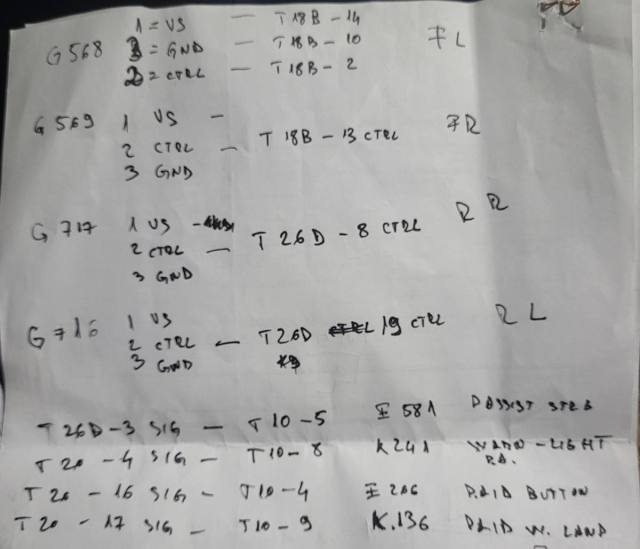 1 = VS — T18B - 14
G568 3 = GND — T18B - 10 FL
2 = CTRL — T18B - 2
G569 1 VS — FR
2 CTRL — T18B - 13 CTRL
3 GND
G717 1 VS - RR
2 CTRL — T26D - 8 CTRL
3 GND
G716 1 VS RL
2 CTRL — T26D 19 CTRL
3 GND
T26D - 3 SIG — T10 - 5 E581 PASSIST
T20 - 4 SIG — T10 - 8 K241 WARN - LIGHT
P.A.
T20 - 16 SIG — T10 - 4 E266 BUTTON
T20 - 17 SIG — T10 - 9 K.136 W. LAND